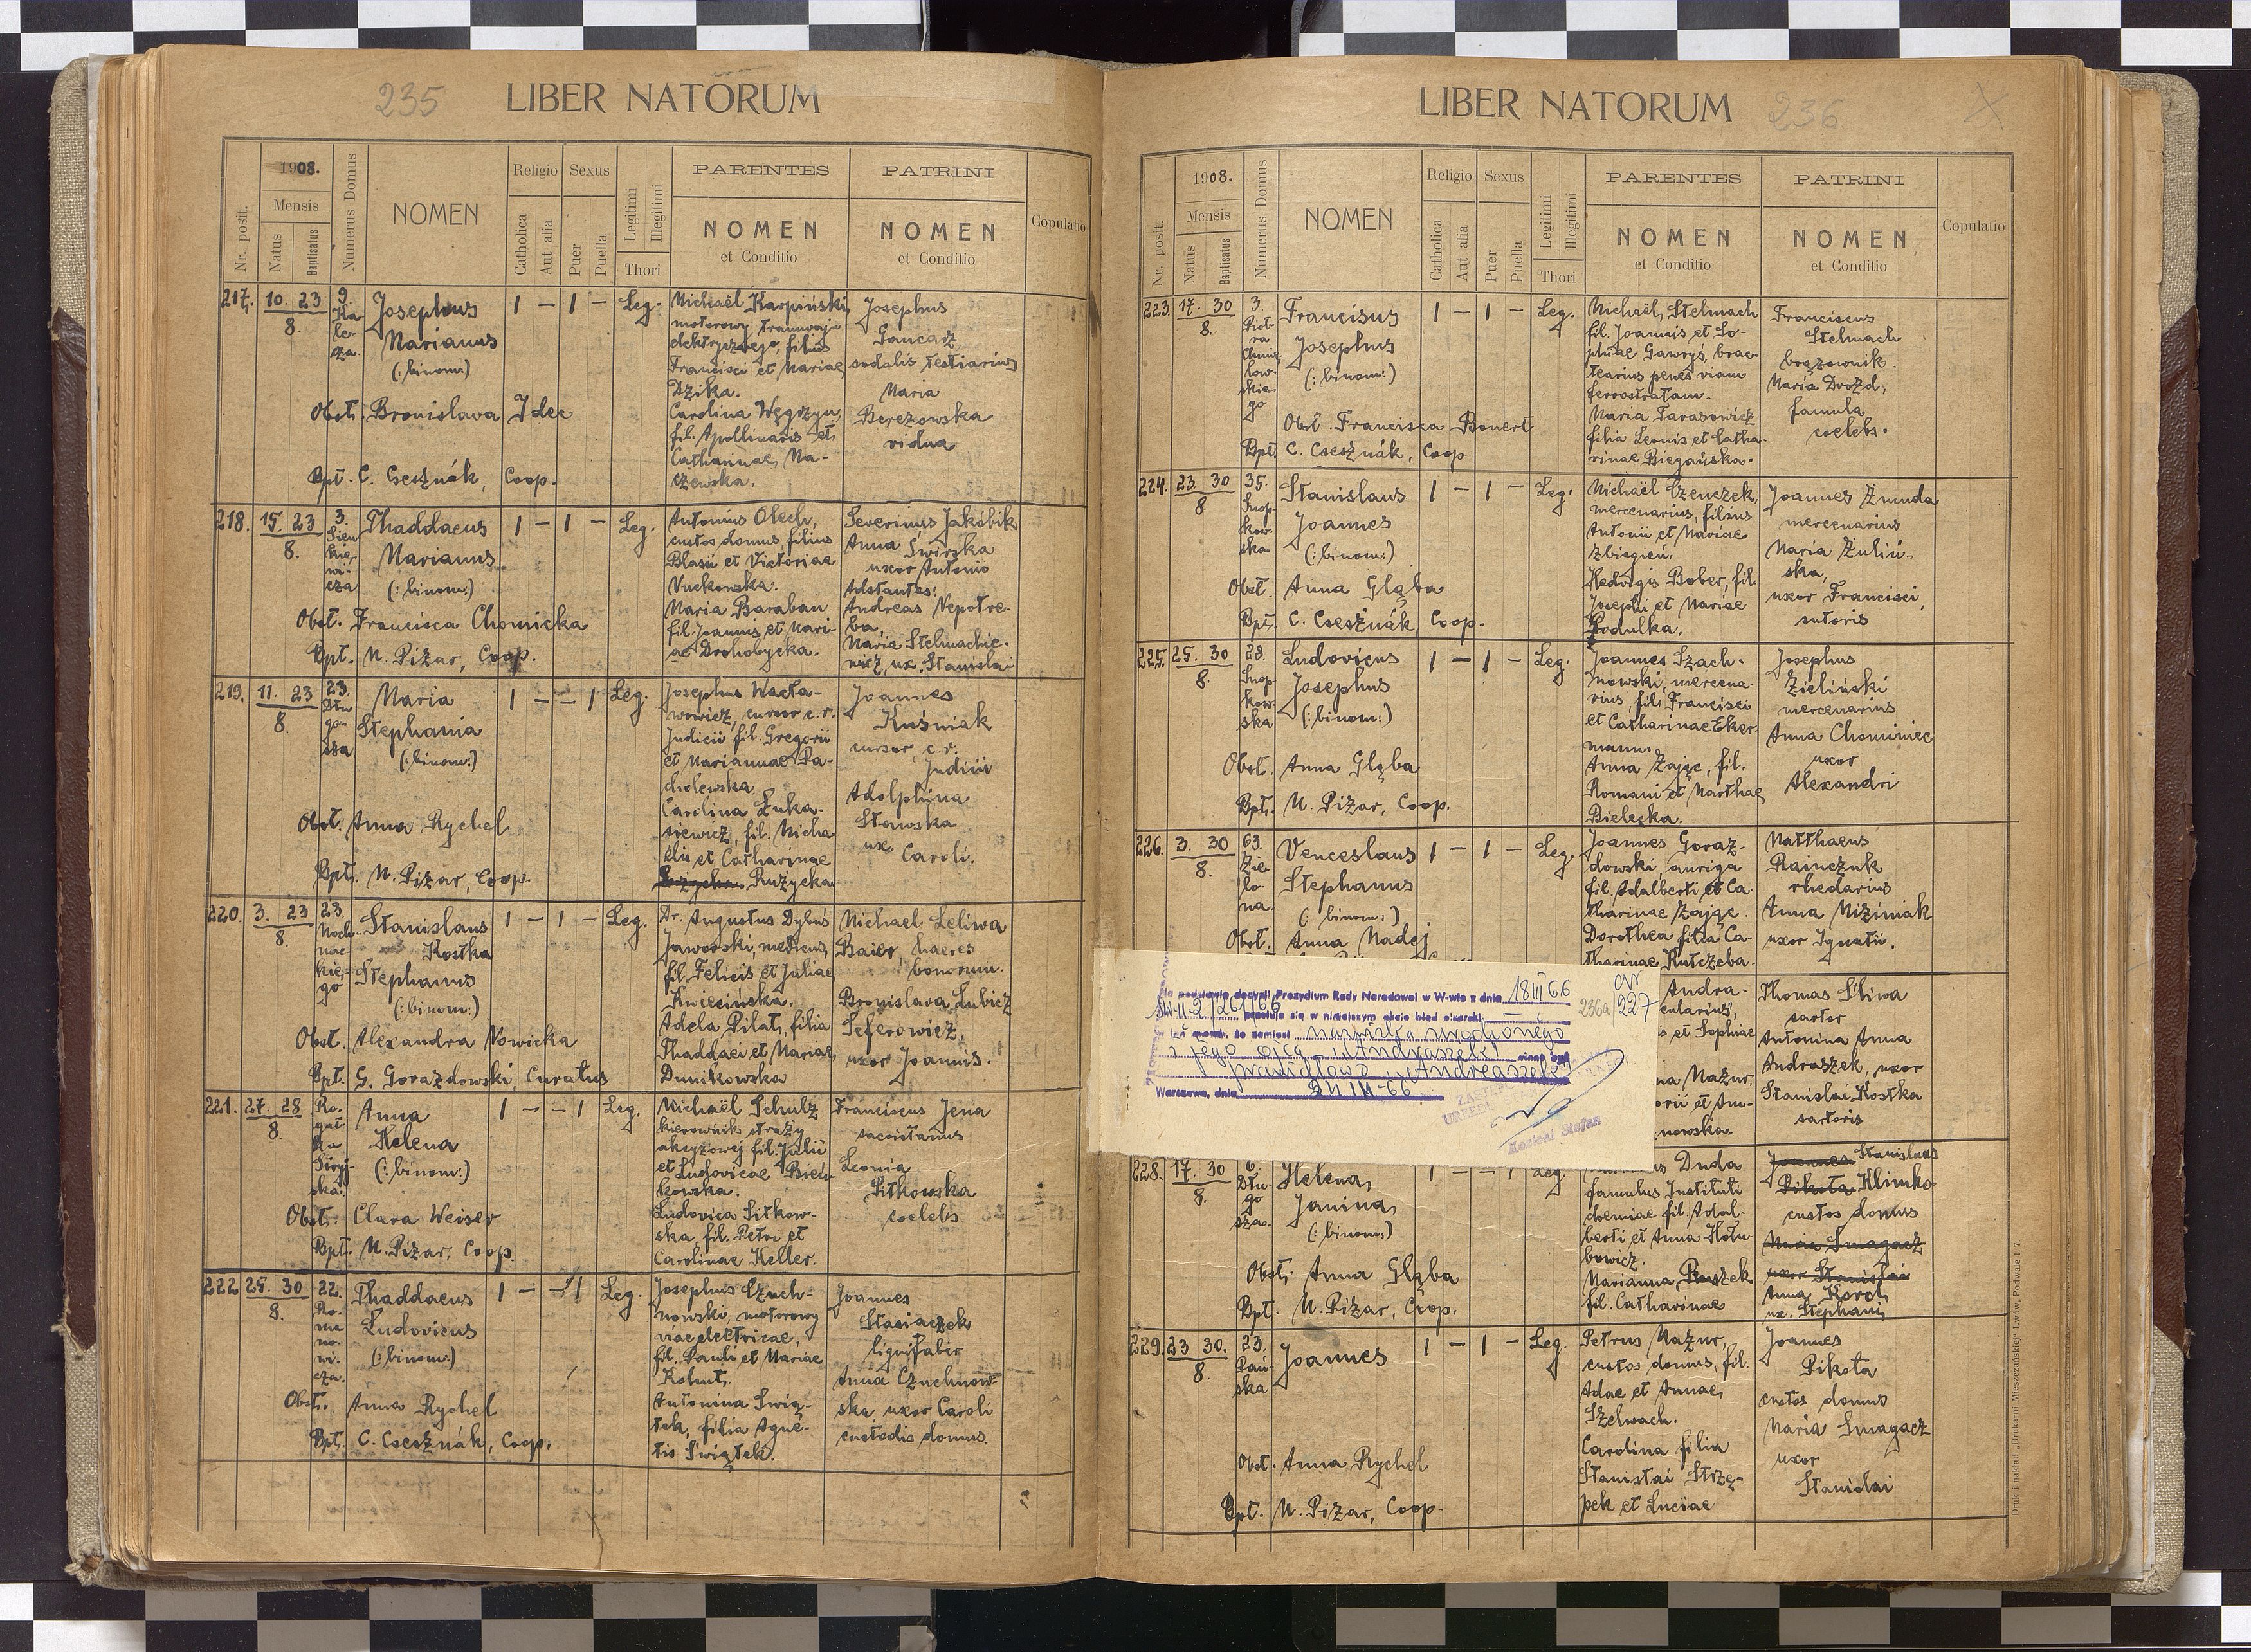 235
LIBER NATORUM
1908.
Nr. posit.
Mensis
Natus
Baptisatus
Numerus Domus
NOMEN
Religio
Catholica
Aut alia
Sexus
Puer
Puella
Legitimi
Illegitimi
Thori
PARENTES
NOMEN
et Conditio
PATRINI
NOMEN
et Conditio
Copulatio
217. 10. 23
8.
9.
Ka
le-
cza.
Josephus
Marianus
(: binom:)
1 – 1 –
Leg.
Obst. Bronislava Idec
Bpt. C. Csesznák, Coop.
Michaël Karpiński,
motorowy tramwaju
elektrycznego, filius
Francisci et Mariae
Dzika.
Carolina Węgrzyn,
fil. Apollinaris et
Catharinae, Ma-
czewska.
Josephus
sodalis
Maria
Berezowska
vidua
218. 15. 23
8.
3.
Sien
kie-
wi-
cza
Thaddaeus
Marianus
(: binom:)
1 – 1 –
Leg.
Obst. Francisca Chomicka
Bpt. M. Piżar, Coop.
Antonius Olech,
custos domus, filius
Blasii et Victoriae
Maria Baraban
fil. Joannis et Mari-
ae Drohobycka.
Severinus Jakóbik
Anna Świrska
uxor Antonio
Adstantes:
Andreas Nepotre-
ba,
Maria Stelmachie-
wicz, ux. Stanislai
219. 11. 23
8.
23.
Dłu
go
sza.
Maria
Stephania
(: binom:)
1 – – 1
Leg.
Obst. Anna Rychel
Bpt. M. Piżar, Coop.
Josephus Wacła-
wowicz, cursor c. r.
Judicii fil. Gregorii
et Mariannae Pa-
cholewska
Carolina Łuka-
siewicz, fil. Micha
ëlis et Catharinae
Rużycka
Joannes
Kuśniak
cursor c. r.
Judicii
Adolphina
Stawska
ux. Caroli.
220. 3. 23
8.
23.
Moch-
nac-
kie-
go
Stanislaus
Kostka
Stephanus
(: binom:)
1 – 1 –
Leg.
Obst. Alexandra Nowicka
Bpt. G. Gorazdowski, Curatus
Dr. Augustus Dybuś
Jaworski, medicus,
fil. Felicis et Juliae
Kwiecińska.
Adela Pilat, filia
Thaddaei et Mariae
Dunikowska
Michael Leliwa
Baier, haeres
bonorum.
Bronislava Lubicz
Seferowicz,
uxor Joannis.
221. 27. 28
8.
Ro-
gat-
ka
Stryj-
ska.
Anna
Helena
(: binom:)
1 – – 1
Leg.
Obst. Clara Weiser
Bpt. M. Piżar, Coop.
Michaël Schulz
kierownik straży
akcyzowej fil. Julii
et Ludovicae Bień
kowska.
Ludovica Sitkow-
ska, fil. Petri et
Carolinae Keller.
Franciscus Jena
sacristanus
Leonia
Sitkowska
coelebs
222 25. 30
8.
22.
Ro-
ma
no-
wi-
cza.
Thaddaeus
Ludovicus
(: binom:)
1 – – 1
Leg.
Obst. Anna Rychel
Bpt. C. Csesznák, Coop.
Josephus Czuch-
nowski, motorowy
viae electricae,
fil. Pauli et Mariae
Kohut.
Antonina Świą-
tek, filia Agne-
tis Świątek.
Joannes
Stasiaczek
lignifaber
Anna Czuchnow-
ska, uxor Caroli
custodis domus.
LIBER NATORUM
236
X
1908.
Nr. posit.
Mensis
Natus
Baptisatus
Numerus Domus
NOMEN
Religio
Catholica
Aut alia
Sexus
Puer
Puella
Legitimi
Illegitimi
Thori
PARENTES
NOMEN
et Conditio
PATRINI
NOMEN
et Conditio
Copulatio
223. 17. 30
8.
3.
Piot-
ra
Chmie
low-
skie-
go
Francisus
Josephus
(: binom:)
1 – 1 –
Leg.
Obst. Francisca Bonert
Bpt. C. Csesznák, Coop
Michaël Stelmach
fil. Joannis et So-
phiae Gawryś, brac-
tearius penes viam
ferrostratam.
Maria Tarasowicz
filia Leonis et Catha-
rinae Biegańska.
Franciscus
Stelmach
brązownik.
Maria Drozd,
famula
coelebs.
224. 23. 30
8
35.
Snop
kow-
ska
Stanislaus
Joannes
(: binom:)
1 – 1 –
Leg.
Obst. Anna Głąba
Bpt. C. Csesznák, Coop.
Michaël Czenczek,
mercenarius, filius
Antonii et Mariae
Zbiegień.
Hedvigis Bober, fil.
Josephi et Mariae
Godulka.
Joannes Żmuda
mercenarius
Maria Żuliń-
ska,
uxor Francisci,
sutoris
225. 25. 30
8.
28.
Snop
kow-
ska
Ludovicus
Josephus
(: binom:)
1 – 1 –
Leg.
Obst. Anna Głąba
Bpt. M. Piżar, Coop.
Joannes Szach-
nowski, mercena-
rius, fil. Francisci
et Catharinae Eker-
mann.
Anna Zając, fil.
Romani et Marthae
Bielecka.
Josephus
Zieliński
mercenarius
Anna Chominiec
uxor
Alexandri
226. 3. 30
8.
63.
Zie-
lo-
na.
Venceslaus
Stephanus
(: binom:)
1 – 1 –
Leg.
Obst. Anna Madej
Joannes Goraz-
dowski, auriga
fil. Adalberti et Ca-
tharinae Zając.
Dorothea filia Ca-
tharinae Kutrzeba.
Matthaeus
Rainczuk
rhedarius
Anna Miziniak
uxor Ignatii.
Na podstawie decyzji Prezydium Rady Narodowej w W-wie z dnia 18 III 66
prostuje się w niniejszym akcie błąd pisarski
że zamiast nazwiska urodzonego
i jego ojca "Andraszek" winno być
prawidłowo "Andreaszek"
Warszawa, dnia 24 III-66
236a/227
Andra-
s et Sophiae
na Mazur,
orii et An-
nowska
Thomas Śliwa
sartor
Antonina Anna
Andraszek, uxor
Stanislai Kostka
sartoris
228. 17. 30
8.
6.
Dłu-
go
sza.
Helena
Janina
(: binom:)
1 – – 1
Leg.
Obst. Anna Głąba
Bpt. M. Piżar, Coop.
Duda
famulus Instituti
chemiae fil. Adal-
berti et Anna Hołu-
bowicz.
Marianna Ruszek
fil. Catharinae
Joannes Stanislaus
Pikota Klimko
custos domus
Maria Smagacz
uxor Stanislai
Anna Koroch
ux. Stephani
229. 23. 30.
8.
23.
Pań-
ska
Joannes
1 – 1 –
Leg.
Obst. Anna Rychel
Bpt. M. Piżar, Coop.
Petrus Mazur,
custos domus, fil.
Adae et Annae
Szelwach.
Carolina filia
Stanislai Strzę-
pek et Luciae
Joannes
Pikota
custos domus
Maria Smagacz
uxor
Stanislai
Druk i nakład „Drukarni Mieszczańskiej" Lwów, Podwale l. 7.